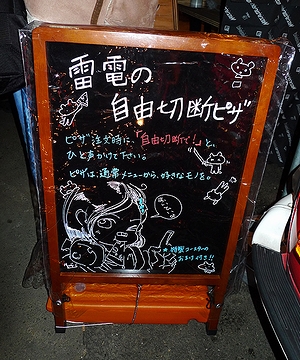 雷電の
自由切断ピザ
ピザ注文時に、「自由切断で!」と、
ひと声かけて下さい。
ピザは、通常メニューから、好きなモノを。
特製コースターの
おまけ付き!!